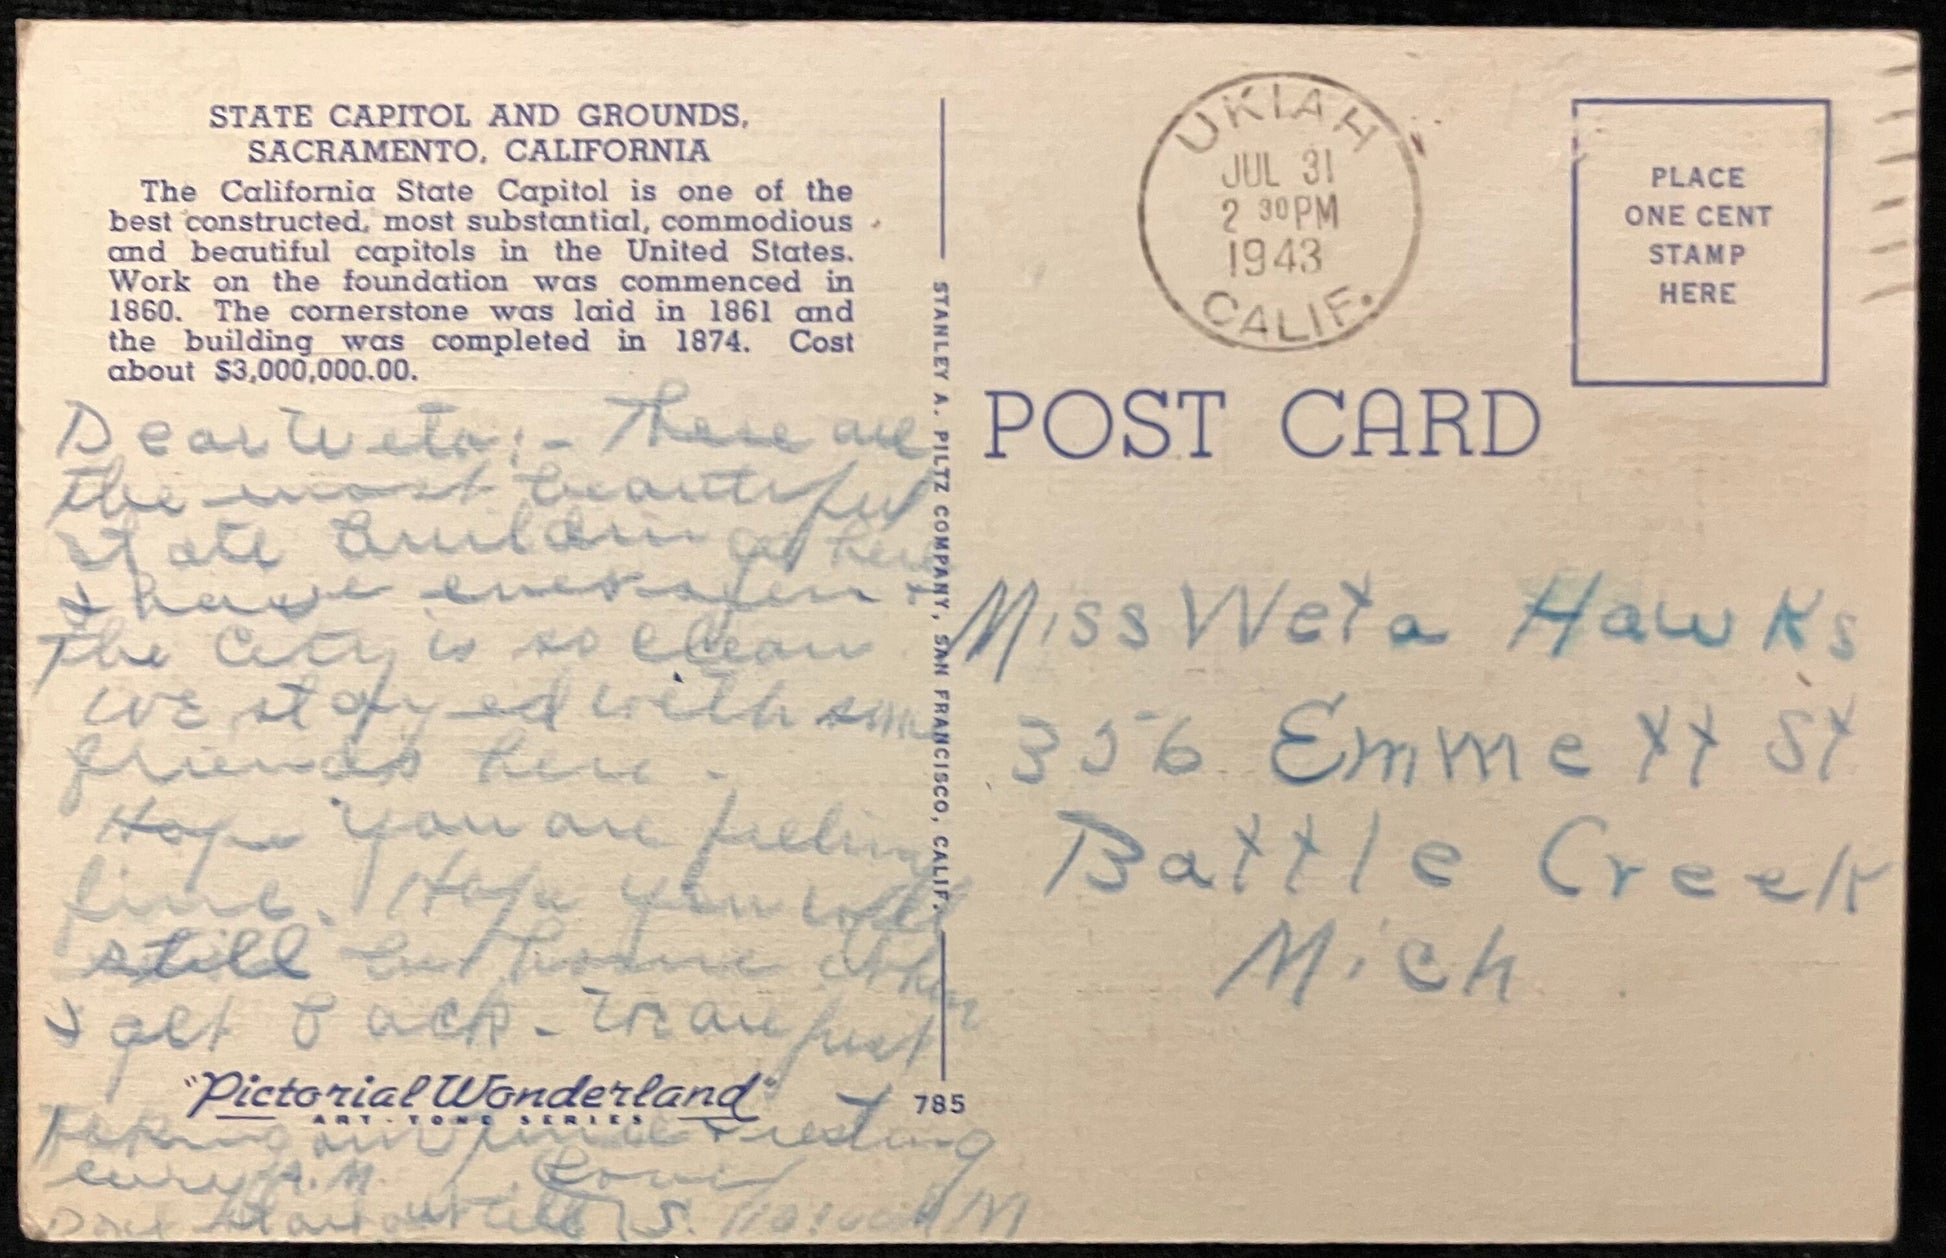 STATE CAPITOL AND GROUNDS,
SACRAMENTO, CALIFORNIA
The California State Capitol is one of the
best constructed, most substantial, commodious
and beautiful capitols in the United States.
Work on the foundation was commenced in
1860. The cornerstone was laid in 1861 and
the building was completed in 1874. Cost
about $3,000,000.00.
Dear Weta:- There are
the most beautiful
state buildings here
I have ever seen +
The City is so clean
We stayed with some
friends here.
Hope you are feeling
fine. Hope you will
still be home when
I get back. We are just
"Pictorial Wonderland"
ART-TONE SERIES
Taking our time + resting
every A.M. Love
785
STANLEY A. PILTZ COMPANY, SAN FRANCISCO, CALIF.
UKIAH
JUL 31
2 30PM
1943
CALIF.
PLACE
ONE CENT
STAMP
HERE
POST CARD
Miss Weta Hawks
356 Emmett St
Battle Creek
Mich